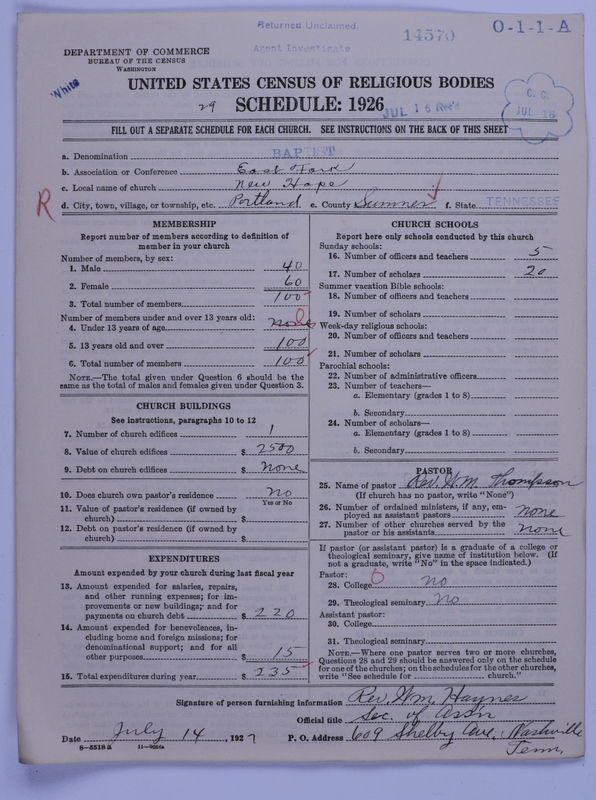 Returned Unclaimed.
14570
O-1-1-A
DEPARTMENT OF COMMERCE
BUREAU OF THE CENSUS
WASHINGTON
Agent Investigate
White
UNITED STATES CENSUS OF RELIGIOUS BODIES
29 SCHEDULE: 1926
JUL 16 Rec'd
C. C.
JUL 16
FILL OUT A SEPARATE SCHEDULE FOR EACH CHURCH. SEE INSTRUCTIONS ON THE BACK OF THIS SHEET
a. Denomination BAPTIST
b. Association or Conference East Fork
c. Local name of church New Hope
R
d. City, town, village, or township, etc. Portland e. County Sumner f. State TENNESSEE
MEMBERSHIP
Report number of members according to definition of
member in your church
Number of members, by sex:
1. Male 40
2. Female 60
3. Total number of members 100
Number of members under and over 13 years old:
4. Under 13 years of age none
5. 13 years old and over 100
6. Total number of members 100
NOTE.—The total given under Question 6 should be the
same as the total of males and females given under Question 3.
CHURCH BUILDINGS
See instructions, paragraphs 10 to 12
7. Number of church edifices 1
8. Value of church edifices $ 2500
9. Debt on church edifices $ none
10. Does church own pastor's residence no
Yes or No
11. Value of pastor's residence (if owned by
church) $
12. Debt on pastor's residence (if owned by
church) $
EXPENDITURES
Amount expended by your church during last fiscal year
13. Amount expended for salaries, repairs,
and other running expenses; for im-
provements or new buildings; and for
payments on church debt $ 220
14. Amount expended for benevolences, in-
cluding home and foreign missions; for
denominational support; and for all
other purposes $ 15
15. Total expenditures during year $ 235
CHURCH SCHOOLS
Report here only schools conducted by this church
Sunday schools:
16. Number of officers and teachers 5
17. Number of scholars 20
Summer vacation Bible schools:
18. Number of officers and teachers
19. Number of scholars
Week-day religious schools:
20. Number of officers and teachers
21. Number of scholars
Parochial schools:
22. Number of administrative officers
23. Number of teachers—
a. Elementary (grades 1 to 8)
b. Secondary
24. Number of scholars—
a. Elementary (grades 1 to 8)
b. Secondary
PASTOR
25. Name of pastor Rev. W.M. Thompson
(If church has no pastor, write "None")
26. Number of ordained ministers, if any, em-
ployed as assistant pastors none
27. Number of other churches served by the
pastor or his assistants none
If pastor (or assistant pastor) is a graduate of a college or
theological seminary, give name of institution below. (If
not a graduate, write "No" in the space indicated.)
Pastor:
28. College no
29. Theological seminary no
Assistant pastor:
30. College
31. Theological seminary
NOTE.—Where one pastor serves two or more churches,
Questions 28 and 29 should be answered only on the schedule
for one of the churches; on the schedules for the other churches,
write "See schedule for church."
Signature of person furnishing information Rev. Wm Haynes
Official title Sec. of Assn
Date July 14, 1927 P. O. Address 609 Shelby Ave. Nashville
Tenn,
8—5518a 11—9064a